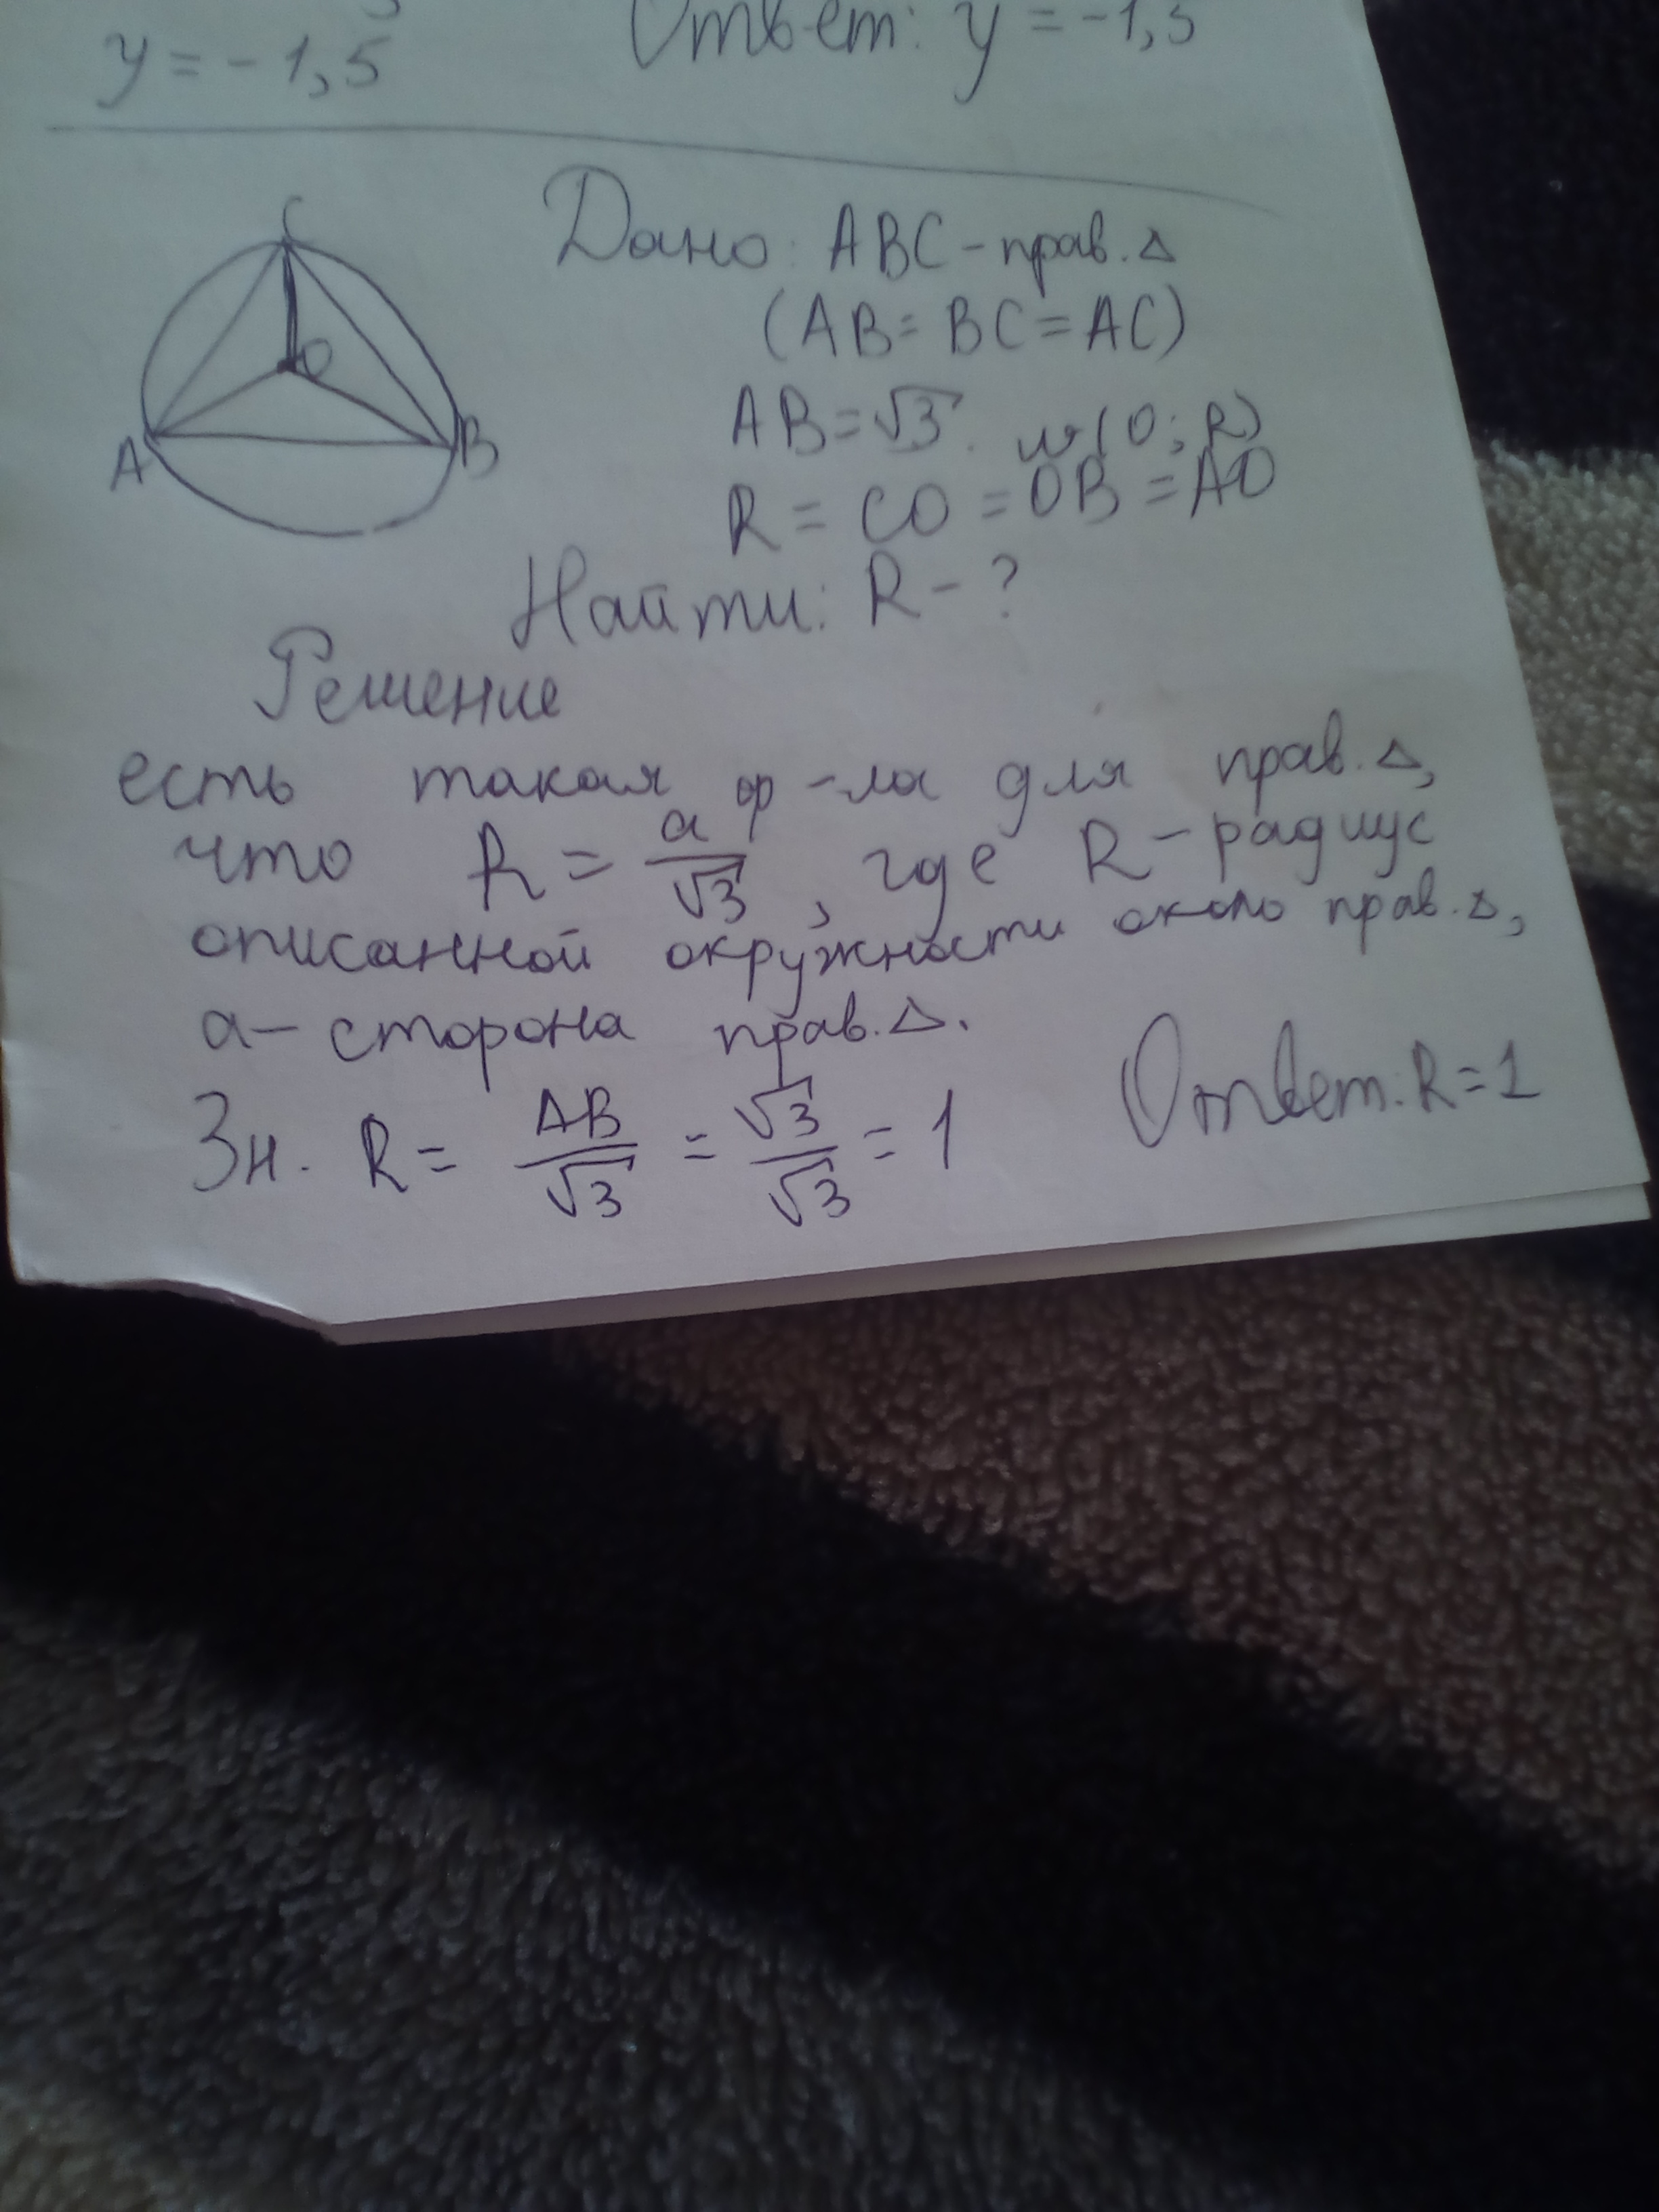 y = -1,5
Ответ: y = -1,5
C
O
A
B
Дано: ABC - прав. Δ
(AB = BC = AC)
AB = √3. w(O; R)
R = CO = OB = AO
Найти: R - ?
Решение
есть такая ф-ла для прав. Δ,
что R = a/√3, где R - радиус
описанной окружности около прав. Δ,
a - сторона прав. Δ.
Зн. R = AB/√3 = √3/√3 = 1
Ответ: R = 1